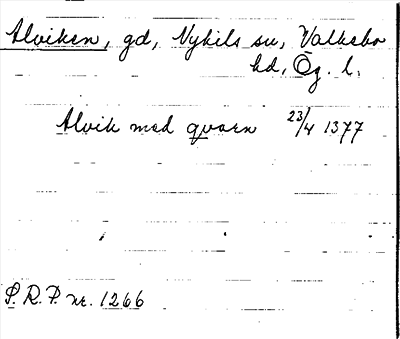 Alviken, gd, Nykils sn, Valkebo
hd, Ög. l.
Alvik med qvarn 23/4 1377
S. R. P. nr. 1266